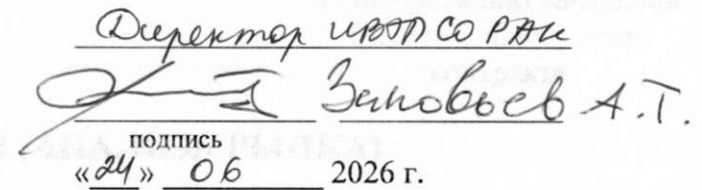 Директор ИВЭП СО РАН
Зиновьев А.Т.
подпись
«24» 06 2026 г.